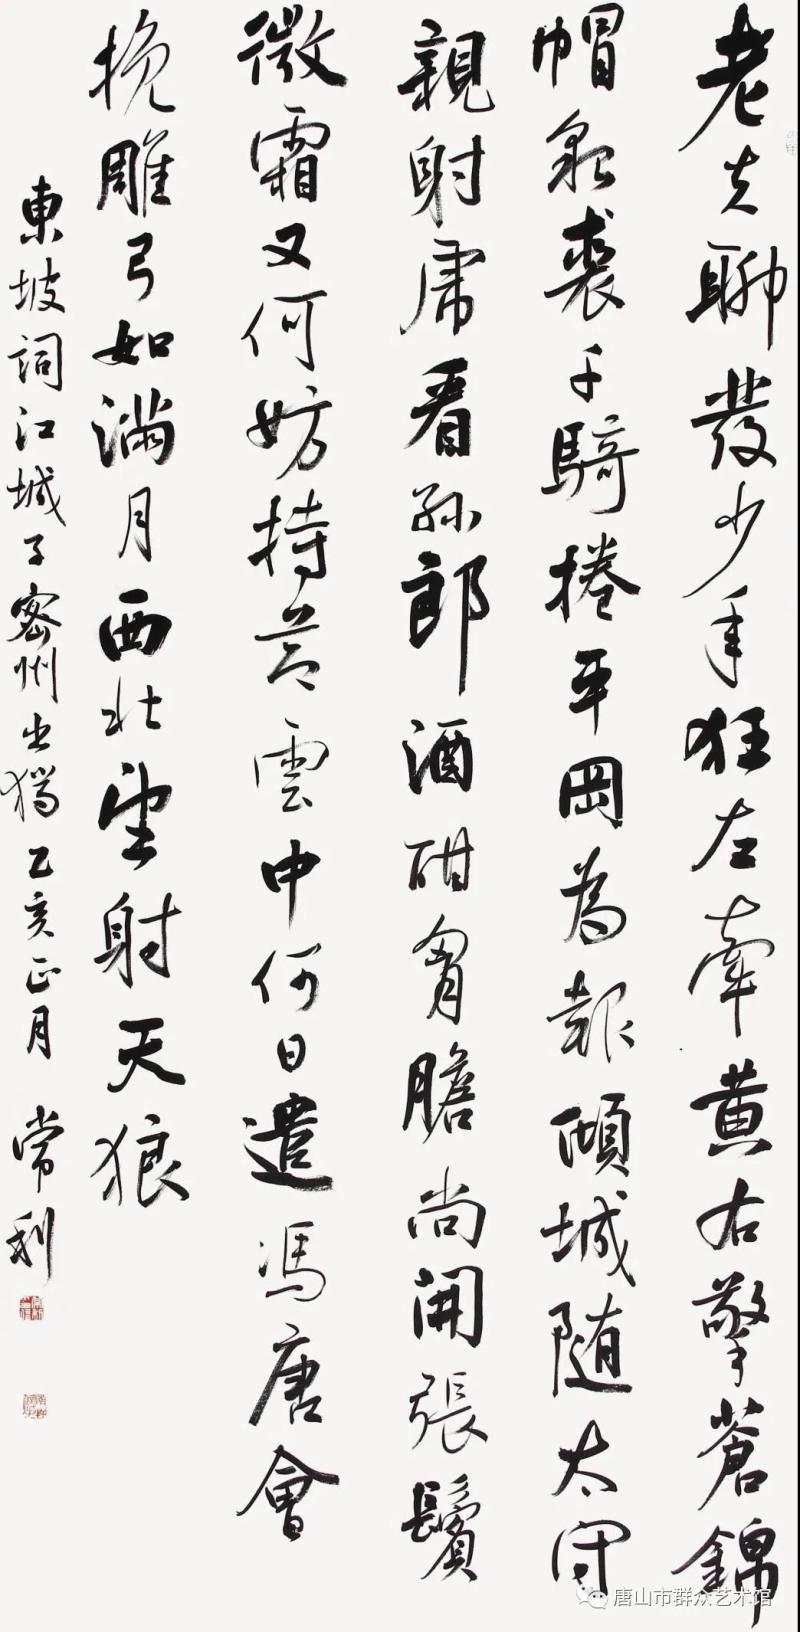 老夫聊發少年狂左牽黃右擎蒼錦
帽貂裘千騎捲平岡為報傾城隨太守
親射虎看孫郎酒酣胸膽尚開張鬢
微霜又何妨持節雲中何日遣馮唐會
挽雕弓如滿月西北望射天狼
東坡詞江城子密州出獵乙亥正月 常利
唐山市群众艺术馆